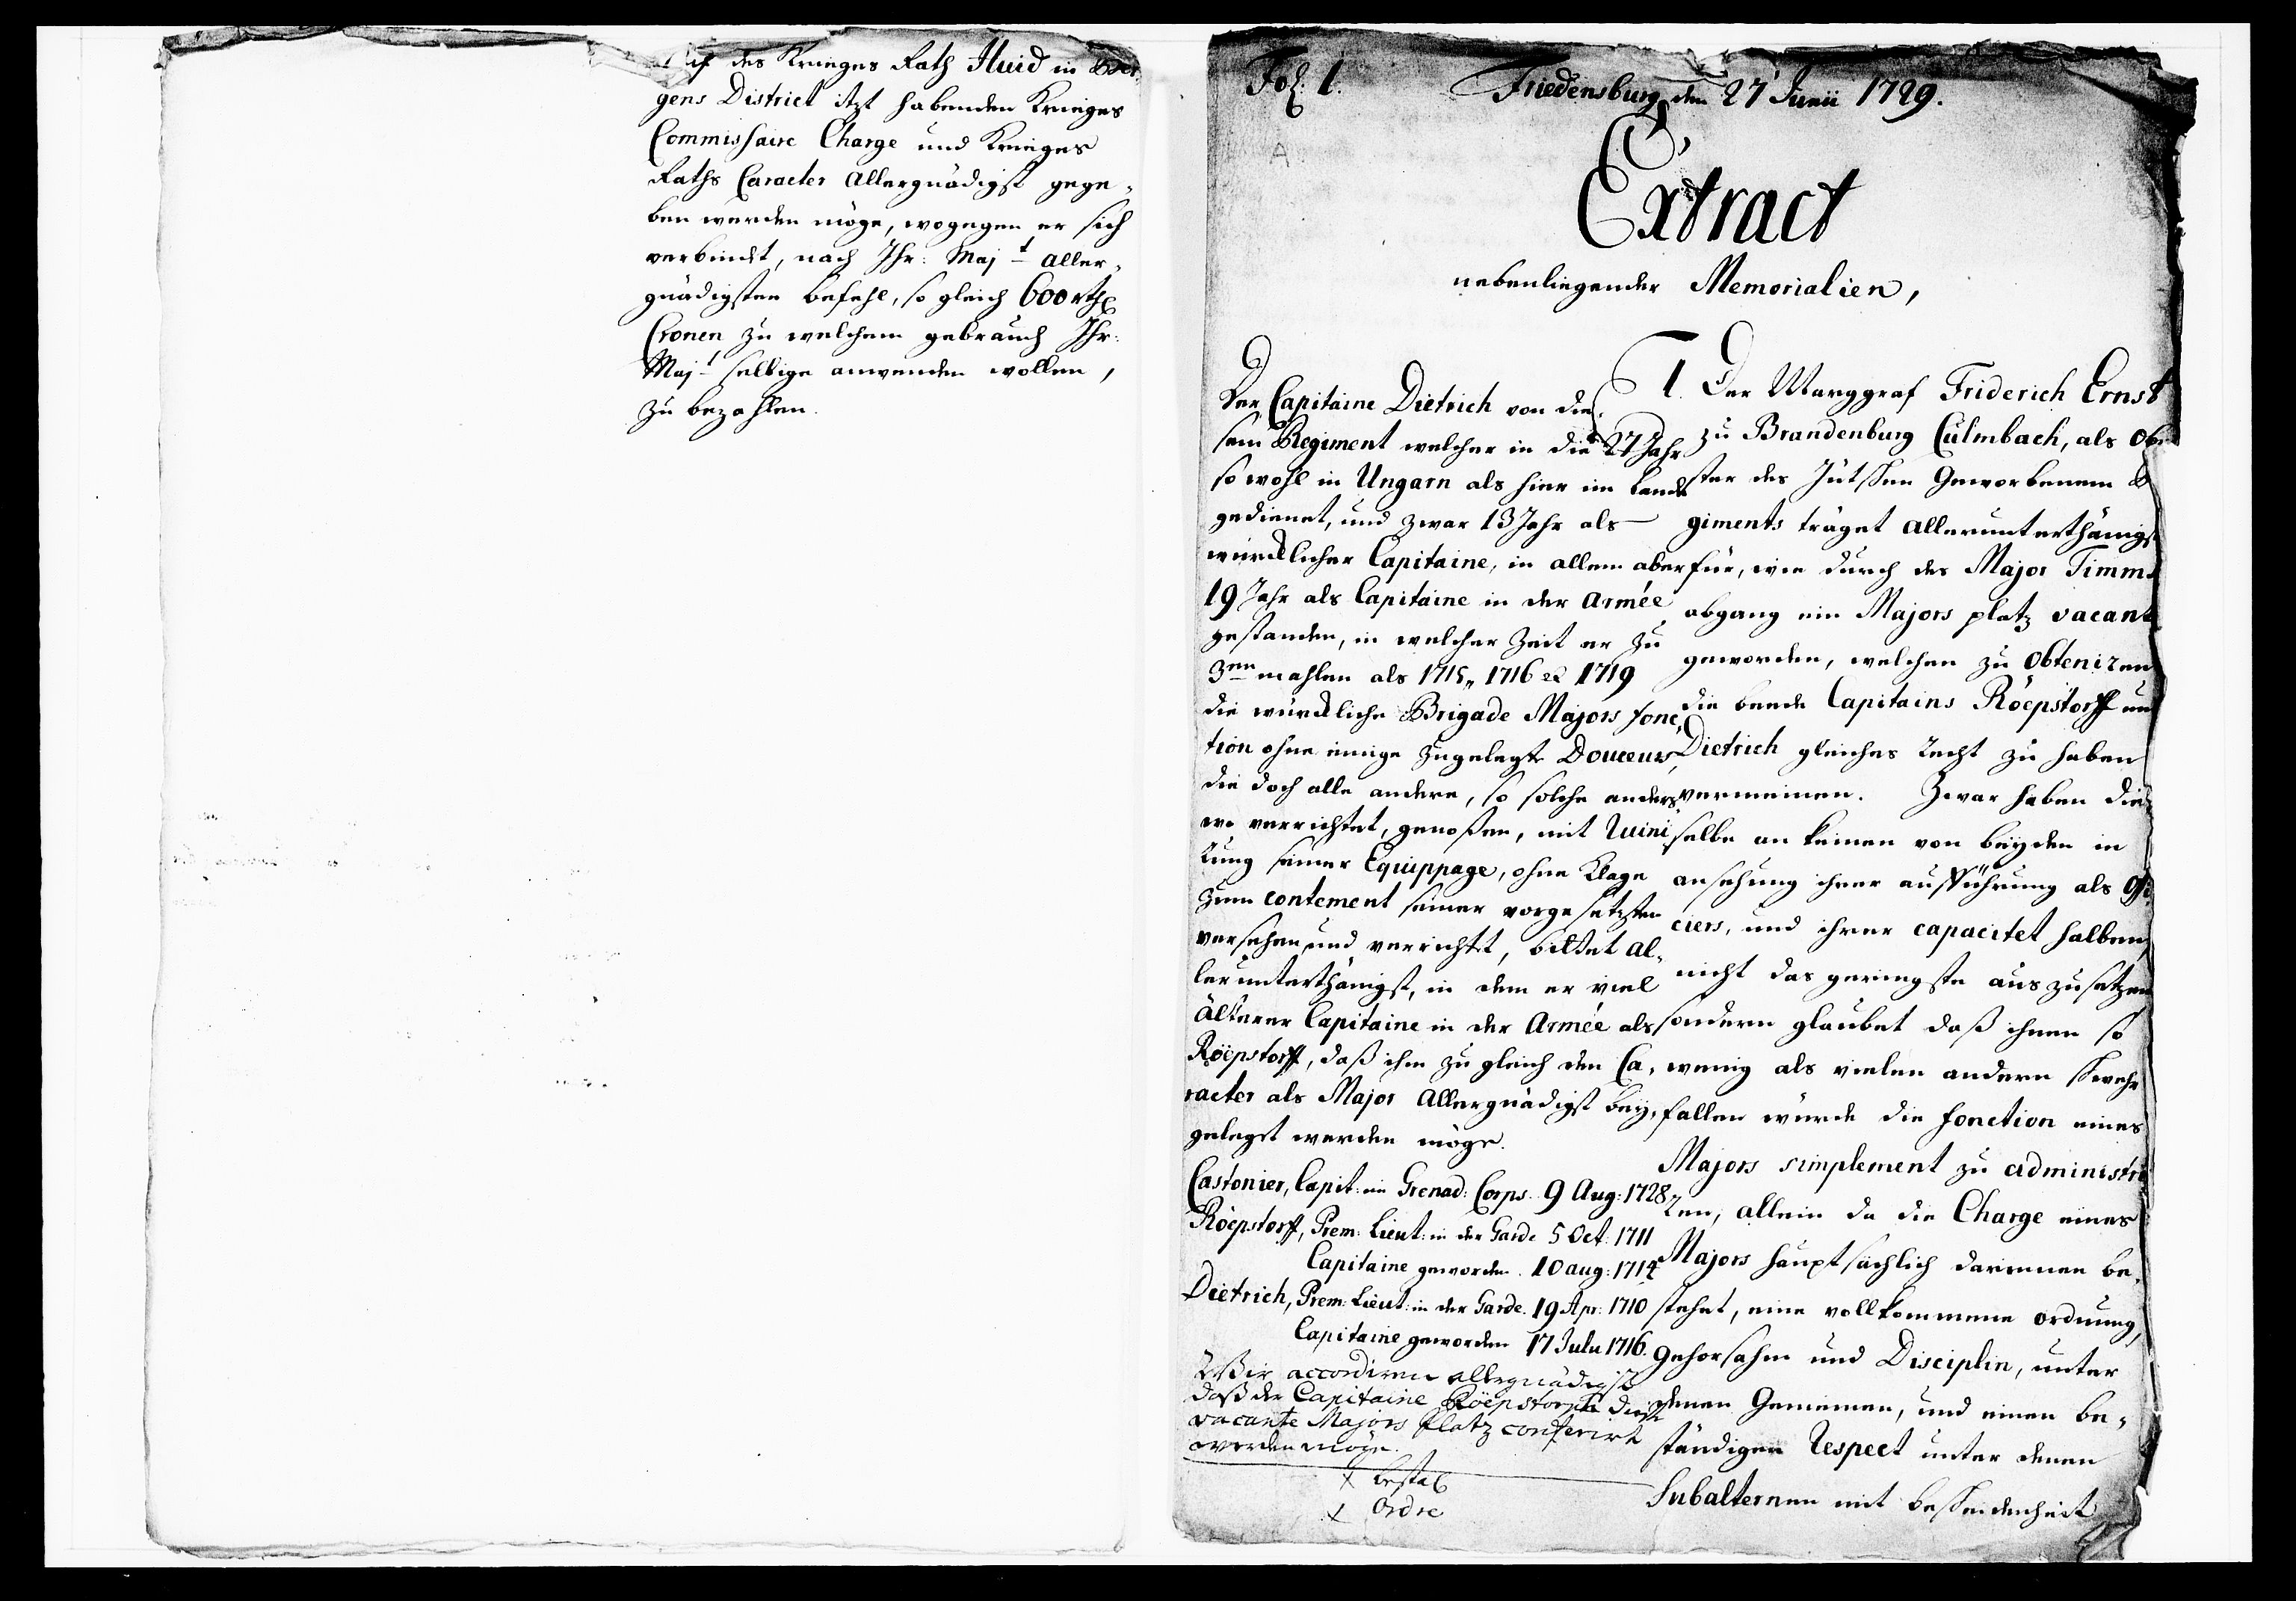 auf des Krieges Rath Huid in Ber,
gens District itzt habenden Krieges
Commissaire Charge und Krieges
Raths Caracter Allergnädigst gege,
ben werden möge, wogegen er sich
verbindt, nach Ihr: Majt aller,
gnädigsten befehl, so gleich 600 rthl
Cronen zu welchem gebrauch Ihr:
Majt selbige anwenden wollen,
zu bezahlen.
Fol: 1.
Friedensburg den 27 Junii 1729.
A
Extract
nebenliegender Memorialien,
Der Capitaine Dietrich von die,
sem Regiment welcher in die 27 Jahr
so wohl in Ungarn als hier im Lande
gedienet, und zwar 13 Jahr als
würcklicher Capitaine, in allem aber
19 Jahr als Capitaine in der Armée
gestanden, in welcher Zeit er zu
3en mahlen als 1715, 1716 et 1719
die würckliche Brigade Majors fonc,
tion ohne einige zugelegte Douceurs,
die doch alle andere, so solche anders,
wo verrichtet, genoßen, mit Ruini,
rung seiner Equippage, ohne Klage
zum contement seiner vorgesetzten
versehen und verrichtet, bittet al,
lerunterthänigst, in dem er viel
älterer Capitaine in der Armée als
Röepstorff, daß ihm zu gleich den Ca,
racter als Major Allergnädigst bey,
gelegt werden möge.
Castonier, Capit: im Grenad: Corps. 9 Aug: 1728.
Röepstorff, Prem: Lieut: in der Garde 5 Oct: 1711
Capitaine geworden. 10 aug: 1714
Dietrich, Prem: Lieut: in der Garde. 19 Apr: 1710
Capitaine geworden 17 Julii 1716.
Wir accordiren allergnädigst
daß der Capitaine Röepstorff diese
vacante Majors Platz conferirt
werden möge.
x bestal
x Ordre
1. Der Marggraf Friderich Ernst
zu Brandenburg Culmbach, als Obri
ster des Jütschen Geworbenen Re
giments träget allerunterthänigst
für, wie durch des Major Timms
abgang ein Majors platz vacant
geworden, welchen zu obteniren
die beede Capitains Röepstorff und
Dietrich gleiches recht zu haben
vermeinen. Zwar haben die,
selbe an keinen von beyden in
ansehung ihrer aufführung als Offi,
ciers, und ihrer capacitet halben,
nicht das geringste auszusetzen
sondern glaubet daß ihnen so
wenig als vielen andern schwehr
fallen würde die fonction eines
Majors simplement zu administri
ren, allein da die Charge eines
Majors hauptsächlich darinnen be,
stehet, eine vollkommene ordnung,
gehorsahm und Disciplin, unter
denen Gemeinen, und einen be,
ständigen Respect unter denen
Subalternen mit bescheidenheit